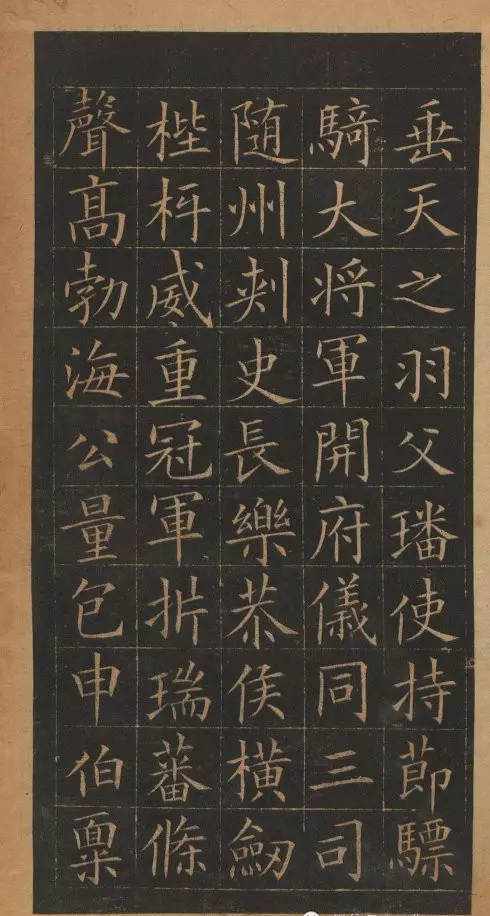 垂天之羽父璠使持莭驃
騎大将軍開府儀同三司
随州刾史長樂恭侯横劔
梐枑威重冠軍析瑞蕃條
聲髙勃海公量包申伯稟